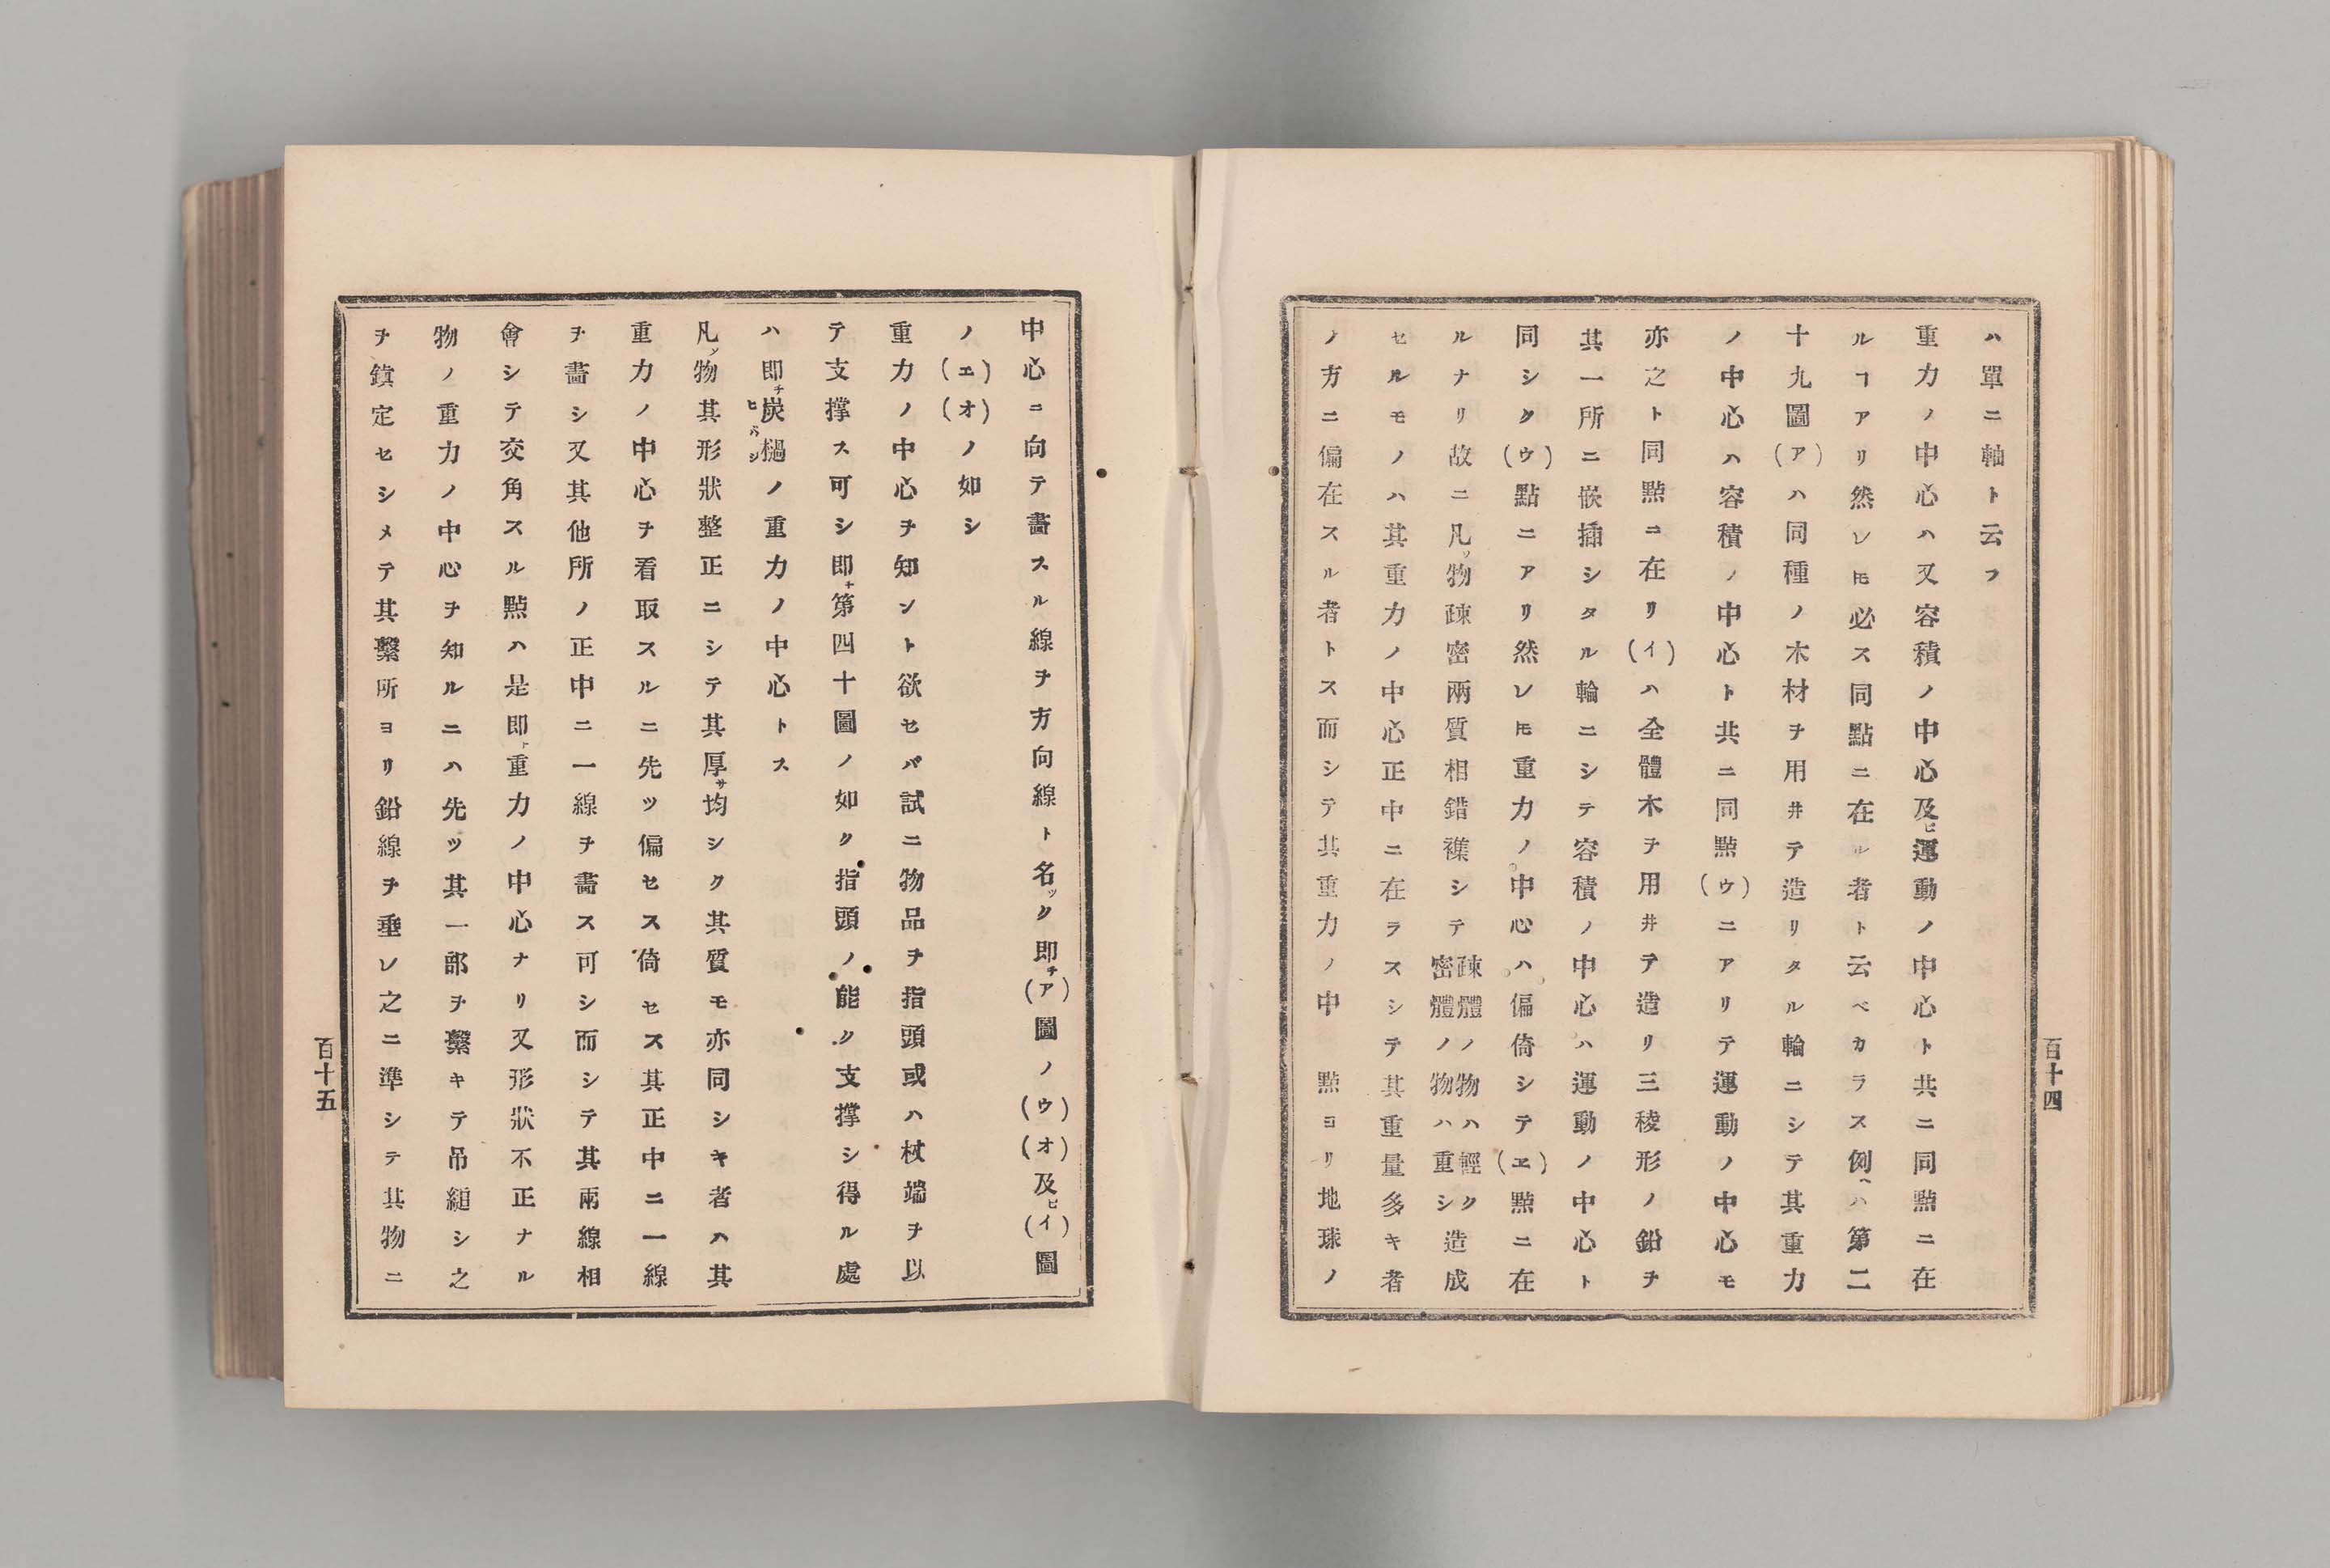 ハ單ニ軸ト云フ
重力ノ中心ハ又容積ノ中心及ヒ運動ノ中心ト共ニ同點ニ在
ルヿアリ然レ𪜈必ス同點ニ在ル者ト云ベカラス例ヘハ第二
十九圖(ア)ハ同種ノ木材ヲ用井テ造リタル輪ニシテ其重力
ノ中心ハ容積ノ中心ト共ニ同點(ウ)ニアリテ運動ノ中心モ
亦之ト同點ニ在リ(イ)ハ全體木ヲ用井テ造リ三稜形ノ鉛ヲ
其一所ニ嵌插シタル輪ニシテ容積ノ中心ハ運動ノ中心ト
同シク(ウ)點ニアリ然レ𪜈重力ノ中心ハ偏倚シテ(ヱ)點ニ在
ルナリ故ニ凡ソ物疎密兩質相錯襍シテ疎體ノ物ハ輕ク密體ノ物ハ重シ造成
セルモノハ其重力ノ中心正中ニ在ラスシテ其重量多キ者
ノ方ニ偏在スル者トス而シテ其重力ノ中點ヨリ地球ノ
百十四
中心ニ向テ畵スル線ヲ方向線ト名ツク即チ(ア)圖ノ(ウ)(オ)及ヒ(イ)圖
ノ(エ)(オ)ノ如シ
重力ノ中心ヲ知ント欲セバ試ニ物品ヲ指頭或ハ杖端ヲ以
テ支撑ス可シ即チ第四十圖ノ如ク指頭ノ能ク支撑シ得ル處
ハ即チ炭檛ヒバシノ重力ノ中心トス
凡ソ物其形狀整正ニシテ其厚サ均シク其質モ亦同シキ者ハ其
重力ノ中心ヲ看取スルニ先ツ偏セス倚セス其正中ニ一線
ヲ畵シ又其他所ノ正中ニ一線ヲ畵ス可シ而シテ其兩線相
會シテ交角スル點ハ是即チ重力ノ中心ナリ又形狀不正ナル
物ノ重力ノ中心ヲ知ルニハ先ツ其一部ヲ繫キテ吊縋シ之
ヲ鎮定セシメテ其繫所ヨリ鉛線ヲ垂レ之ニ準シテ其物ニ
百十五